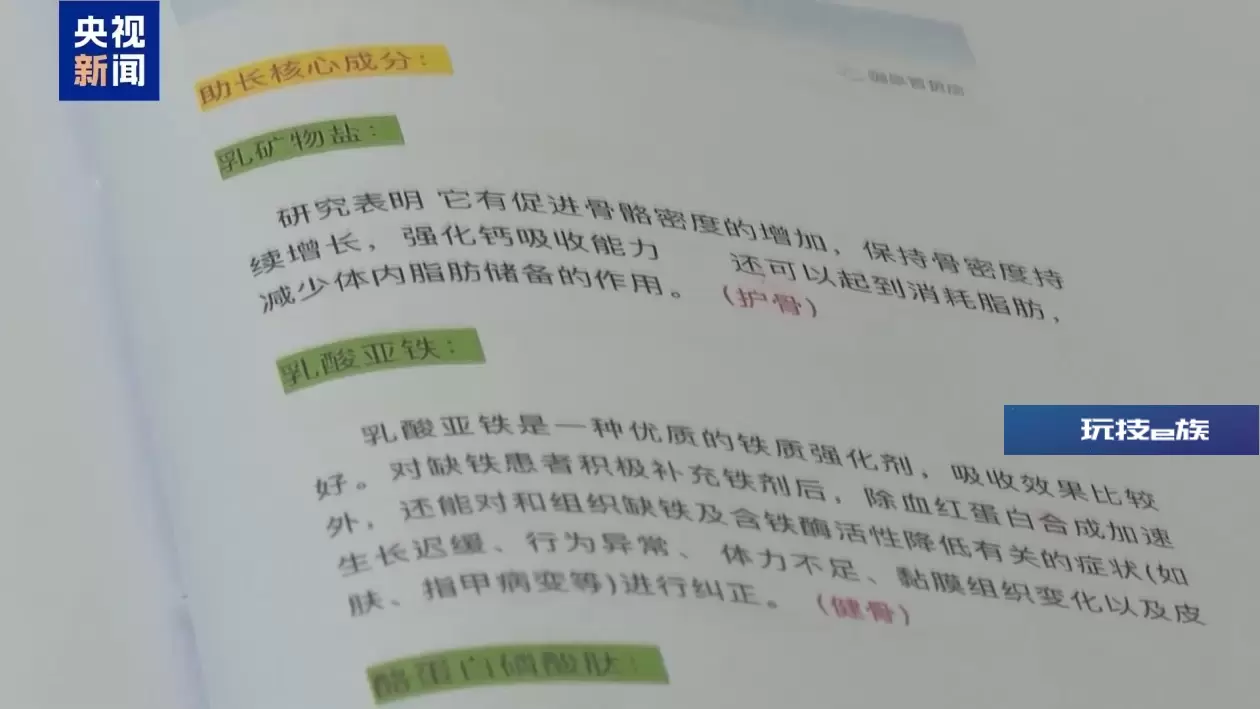 央视
新闻
助长核心成分：
乳矿物盐：
研究表明 它有促进骨骼密度的增加，保持骨密度持
续增长，强化钙吸收能力 还可以起到消耗脂肪，
减少体内脂肪储备的作用。（护骨）
乳酸亚铁：
玩技e族
乳酸亚铁是一种优质的铁质强化剂，吸收效果比较
好。对缺铁患者积极补充铁剂后，除血红蛋白合成加速
外，还能对和组织缺铁及含铁酶活性降低有关的症状(如
生长迟缓、行为异常、体力不足、黏膜组织变化以及皮
肤、指甲病变等)进行纠正。（健骨）
酪蛋白磷酸肽：